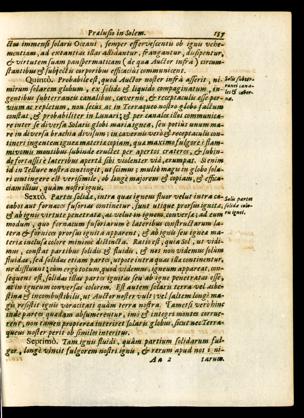 Prælusio in Solem. 157
ctus immensi solaris Oceani, semper effervescentis ob ignis vehe-
mentiam, ad extantias illas allidantur, frangantur, dissipentur,
& virtutem suam panspermaticam (de qua Auctor infra) circum-
stantibus & subjectis corporibus efficacius communicent.
Quintò. Probabile est, quod Auctor noster infra asserit, ni-
mirum solarem globum, ex solido & liquido compaginatum, in-
gentibus subterraneis canalibus, cavernis, & receptaculis esse per-
vium ac repletum, non secus ac in Terraqueo nostro globo factum
constat, & probabiliter in Lunari; & per canales illos communica-
re inter se diversa Solaris globi maria ignea, seu potius unum ma-
re in diversa brachia divisum; in cavernis verò & receptaculis con-
tineri ingentem igneæ materiæ copiam, quæ maximo fulgore & flam-
mivomis montibus subinde evolet per apertos crateres, & subin-
de fortassis è lateribus apertâ sibi violenter viâ, erumpat. Si enim
id in Tellure nostra contingit, ut scimus; multò magis in globo sola-
ri contingere est verisimile, ob longè majorem & copiam, & effica-
ciam illius, quàm nostri ignis.
Sextò. Partes solidæ, intra quas ignis fluor velut intra ca-
cabos aut fornaces fusorias continetur, sunt utique prorsus igneæ,
& ab ignis virtute penetratæ, ac velut in ignem conversæ; ad eum
modum, quo fornacum fusoriarum è lateribus constructarum la-
tera & fornices prorsus ignita apparent, & ab igneis seu igneæ ma-
teriæ conclusæ colore minimè distincta. Ratio est, quia Sol, ut vidi-
mus, constat partibus solidis & fluidis, & nos non videmus solùm
fluidas, sed solidas etiam partes, utpote intra quas illæ continentur,
nec distinguit eorum colorem, quod videmus, igneum apparet, con-
sequens est, solidas illas partes ignitas seu ab igne penetratas esse,
ac in igneum conversas colorem. Est autem solaris terra vel asbe-
stina & incombustibilis, ut Auctor noster vult, vel saltem longè ma-
gis resistit igneis voracitati quàm terra nostra. Tametsi verò hinc
inde partes quædam absumerentur, imò & integri montes corrue-
rent, non tamen propterea interiret solaris globus, sicut nec Terra-
queus noster perit ob similes interitus.
Septimò. Tam ignis fluidi, quàm partium solidarum ful-
gor, longè vincit fulgorem nostri ignis, & rerum apud nos igni-
Aa 2 tarum.
Solis subter-
ranei cana-
les & caver-
næ.
Solis partes
solidæ colo-
ris ignei.